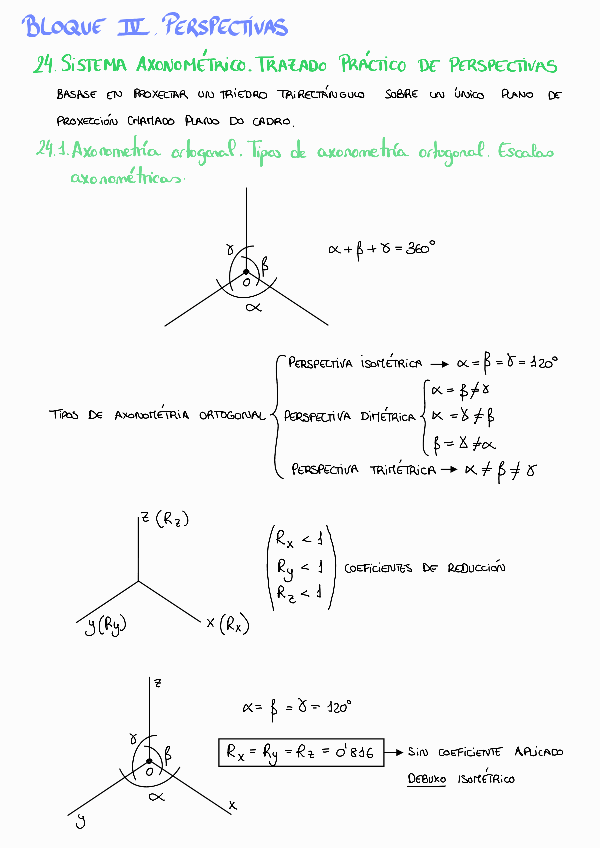 BLOQUE IV. PERSPECTIVAS
24. SISTEMA AXONOMÉTRICO. TRAZADO PRÁCTICO DE PERSPECTIVAS
BASASE EN PROXECTAR UN TRIEDRO TRIRECTÁNGULO SOBRE UN ÚNICO PLANO DE
PROXECCIÓN CHAMADO PLANO DO CADRO.
24.1. Axonometría ortogonal. Tipos de axonometría ortogonal. Escalas
axonométricas.
γ β
O
α
α + β + γ = 360°
PERSPECTIVA ISOMÉTRICA → α = β = γ = 120°
α = β ≠ γ
TIPOS DE AXONOMETRÍA ORTOGONAL PERSPECTIVA DIMÉTRICA α = γ ≠ β
β = γ ≠ α
PERSPECTIVA TRIMÉTRICA → α ≠ β ≠ γ
z (Rz)
y (Ry) x (Rx)
Rx < 1
Ry < 1 COEFICIENTES DE REDUCCIÓN
Rz < 1
z
γ β
O
α
y x
α = β = γ = 120°
Rx = Ry = Rz = 0'816 → SIN COEFICIENTE APLICADO
DEBUXO ISOMÉTRICO